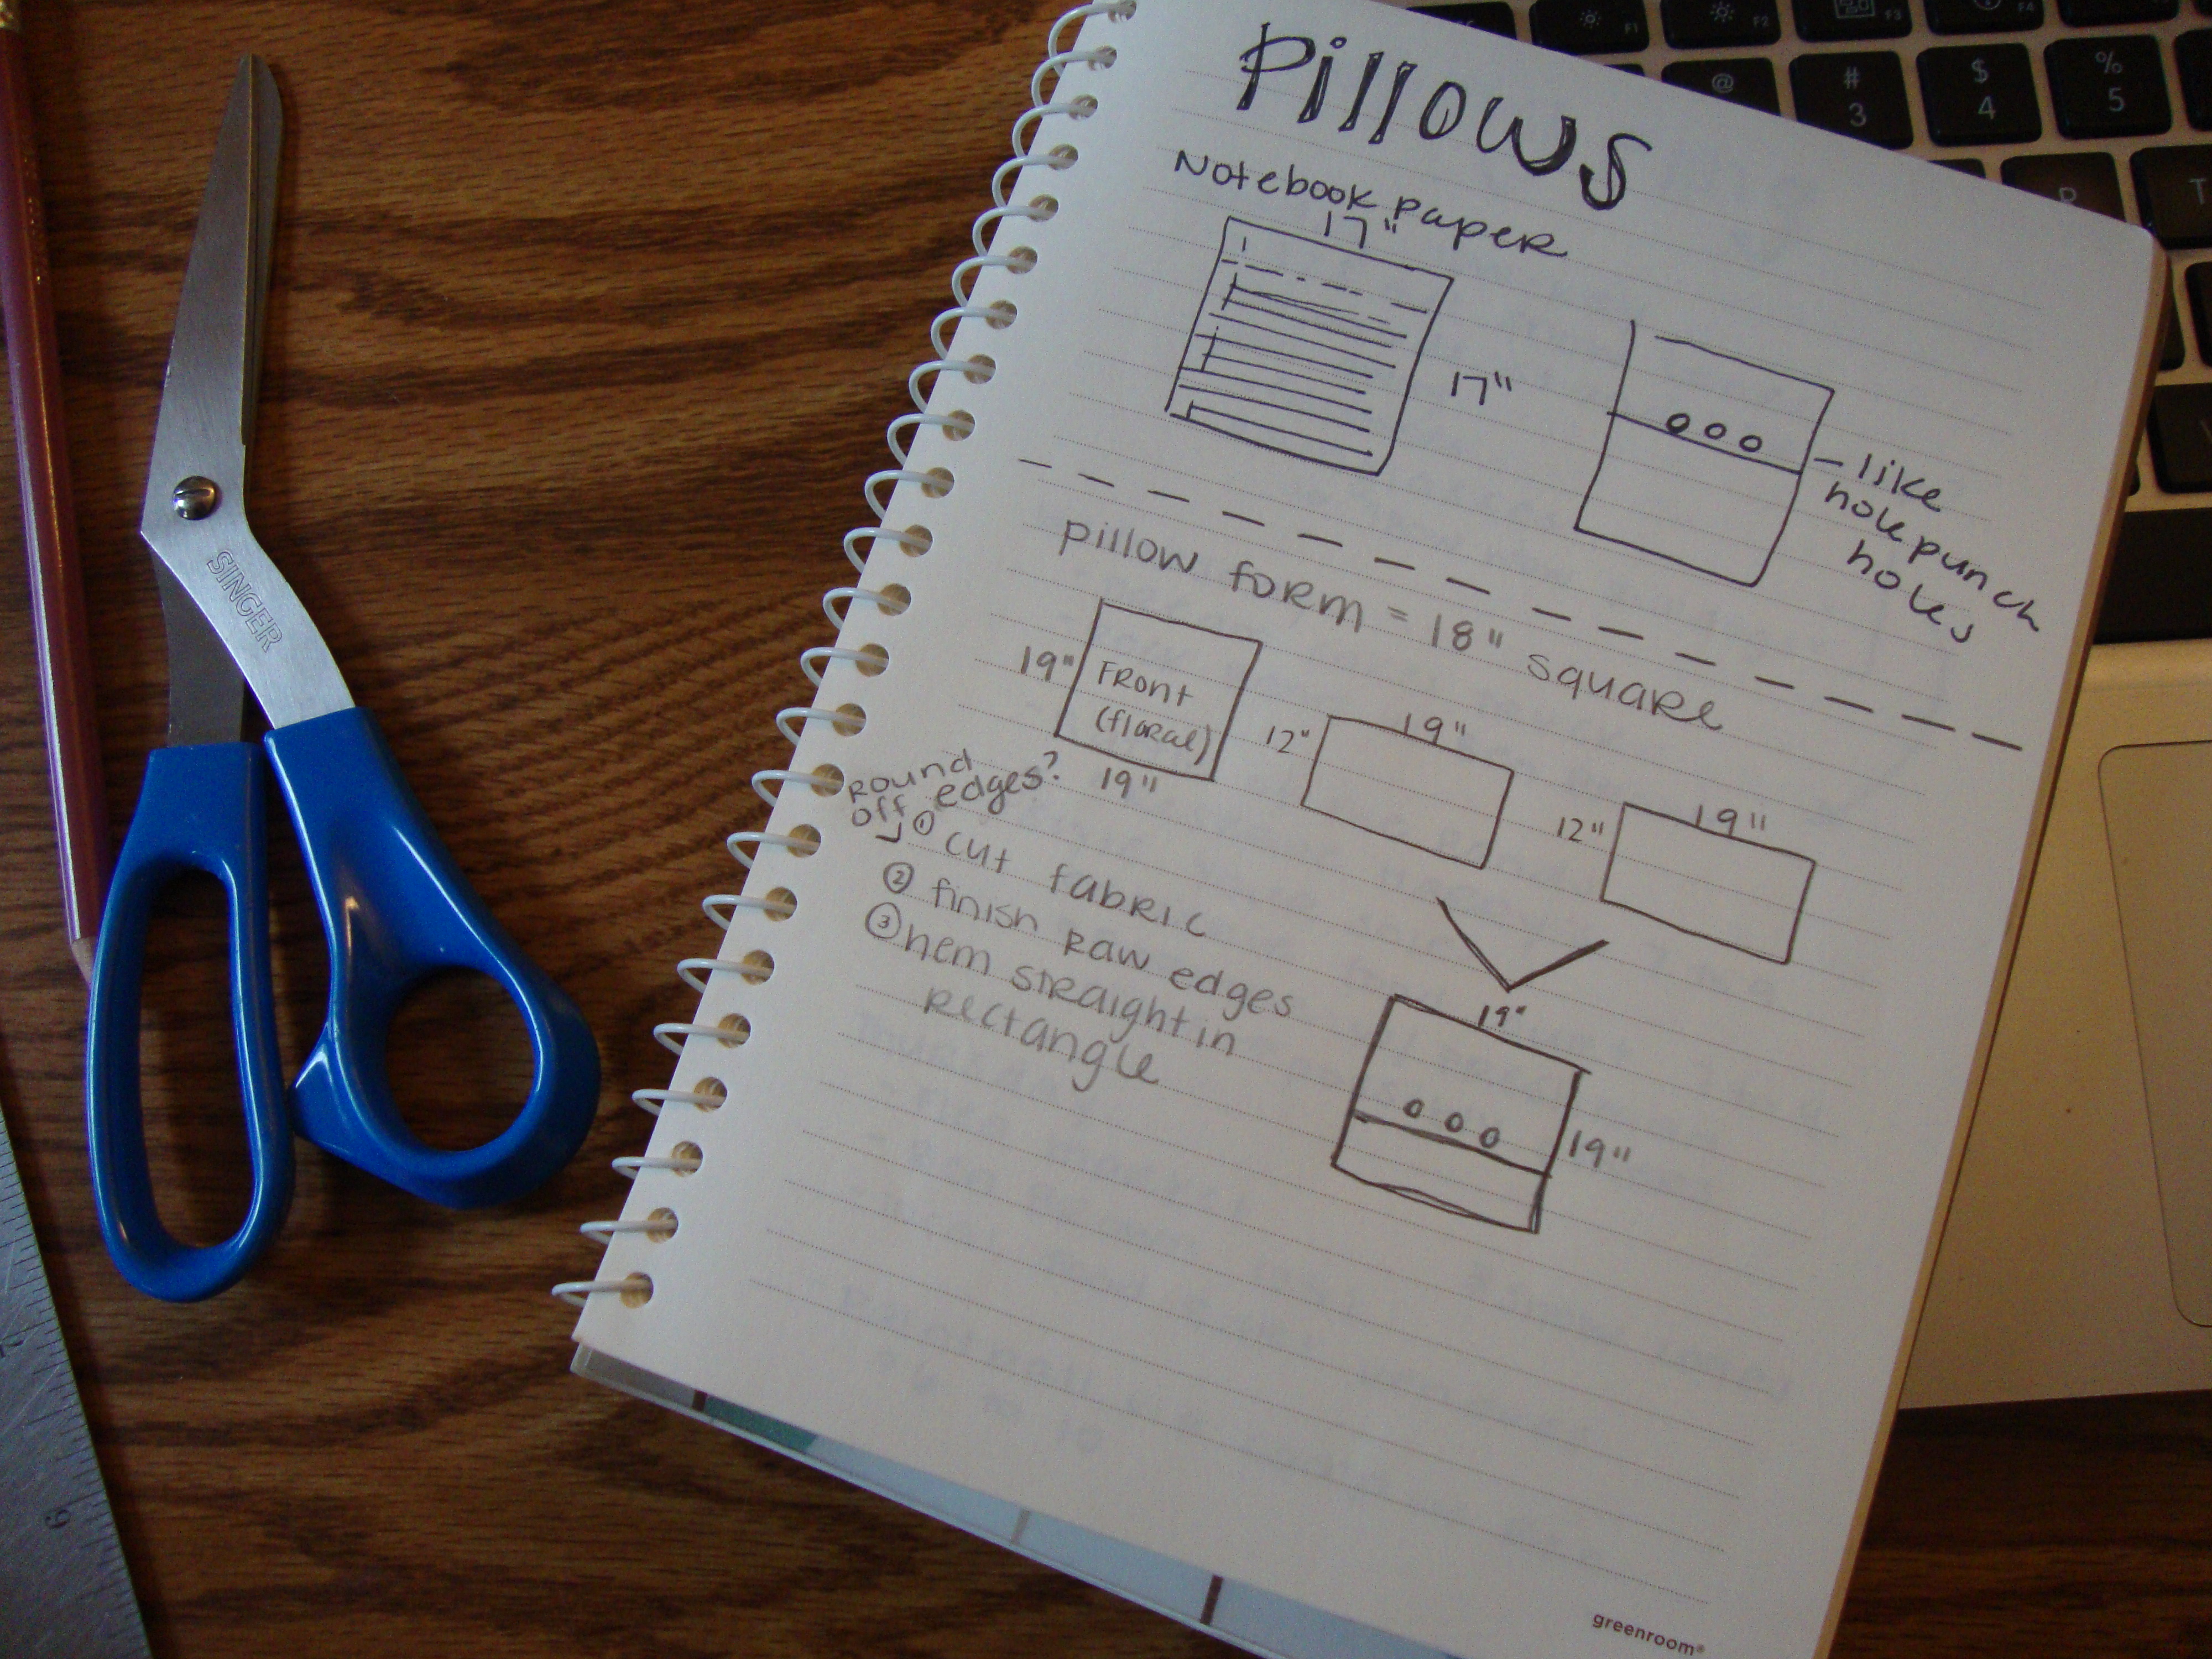 Pillows
Notebook paper
17"
17"
like
hole punch
holes
pillow form = 18" square
19"
Front
(floral)
19"
12"
19"
12"
19"
Round
off edges?
① cut fabric
② finish raw edges
③ hem straight in
rectangle
19"
19"
greenroom®
SINGER
F1
F2
F3
F4
@
#
3
$
4
%
5
R
T
9